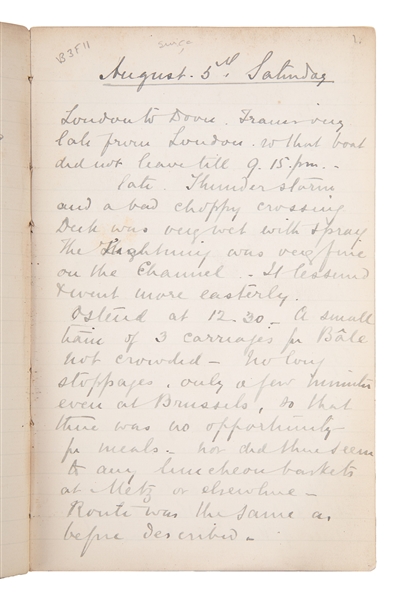 B3F11
1.
August. 5th, Saturday
London to Dover. Train very
late from London. so that boat
did not leave till 9.15. pm. -
late. Thunder storm
and a bad choppy crossing
Deck was very wet with spray
The Lightning was very fine
on the Channel. - It lessened
& went more easterly.
Ostend at 12.30 - A small
train of 3 carriages for Bâle
not crowded - No long
stoppages, only a few minutes
even at Brussels, so that
there was no opportunity
for meals - nor did there seem
to any luncheon baskets
at Metz or elsewhere -
Route was the same as
before described -